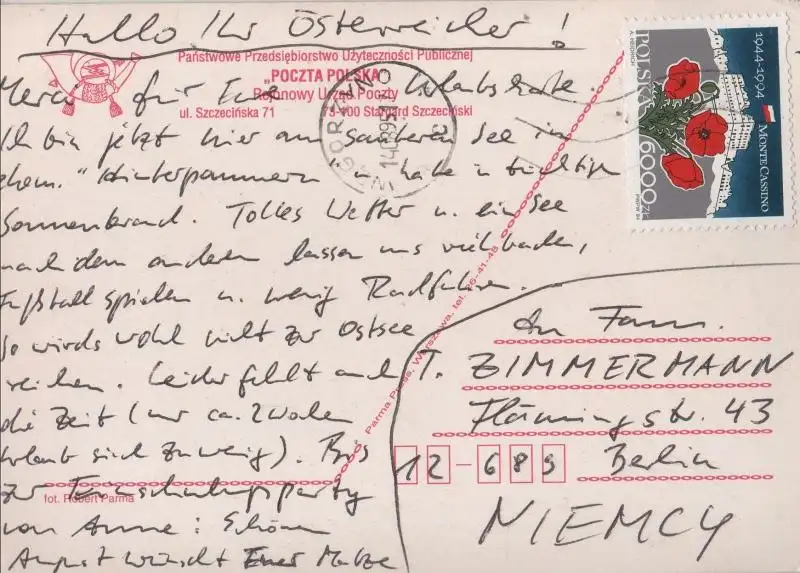 Hallo Ihr Österreicher!
Państwowe Przedsiębiorstwo Użyteczności Publicznej
„POCZTA POLSKA"
Rejonowy Urząd Poczty
ul. Szczecińska 71 73-100 Stargard Szczeciński
Merci für Eure Urlaubskarte
Ich bin jetzt hier am sauberen See im
ehem. "Hinterpommern" u. habe n tüchtigen
Sonnenbrand. Tolles Wetter u. ein See
nach dem anderen lassen uns viel baden,
Fußball spielen u. wenig Radfahren.
So wirds wohl nicht zur Ostsee
reichen. Leider fehlt auch
die Zeit (nur ca. 2 Wochen
Urlaub sind zu wenig). Bis
zur party
von Anne: Schönen
August wünscht Euer Matze
fot. Robert Parma
Parma Press, Warszawa, tel. 26-41-48
POLSKA 6000 ZŁ
1944-1994 MONTE CASSINO
An Fam.
T. ZIMMERMANN
Flämingstr. 43
12-689 Berlin
NIEMCY